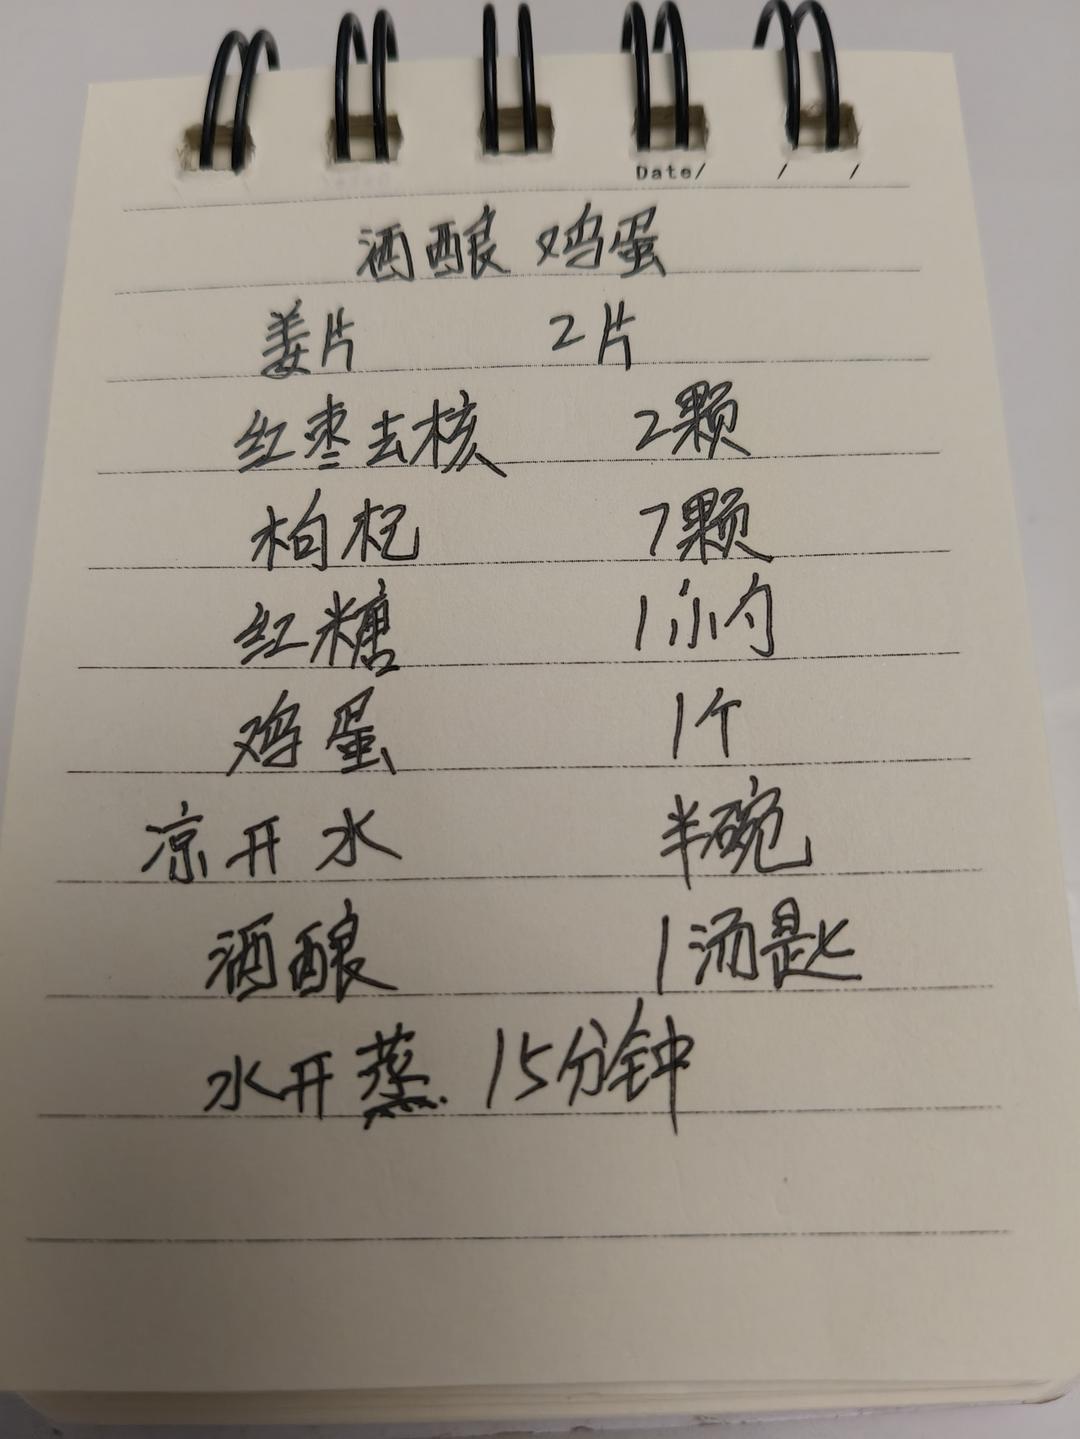 Date/ / /
酒酿 鸡蛋
姜片 2片
红枣去核 2颗
枸杞 7颗
红糖 1小勺
鸡蛋 1个
凉开水 半碗
酒酿 1汤匙
水开蒸 15分钟